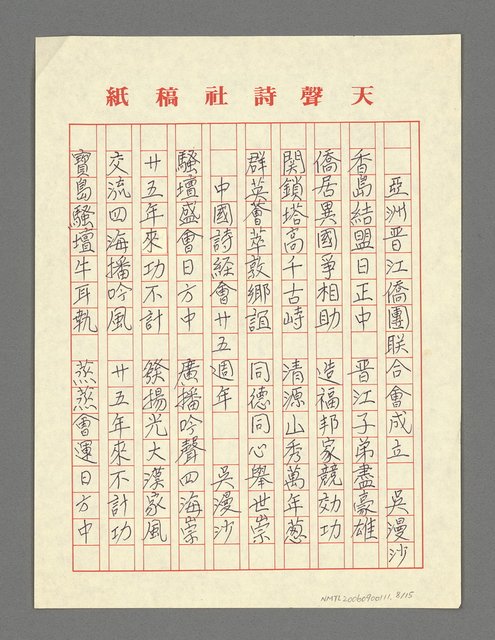 天聲詩社稿紙
亞洲晉江僑團聯合會成立 吳漫沙
香島結盟日正中 晉江子弟盡豪雄
僑居異國爭相助 造福邦家競効功
関鎖塔高千古峙 清源山秀萬年蔥
群英薈萃敦鄉誼 同德同心舉世崇
中國詩経會廿五週年 吳漫沙
騷壇盛會日方中 廣播吟聲四海崇
廿五年來功不計 發揚光大漢家風
交流四海播吟風 廿五年來不計功
寶島騷壇牛耳執 蒸蒸會運日方中
NMTL20060900111. 8/15